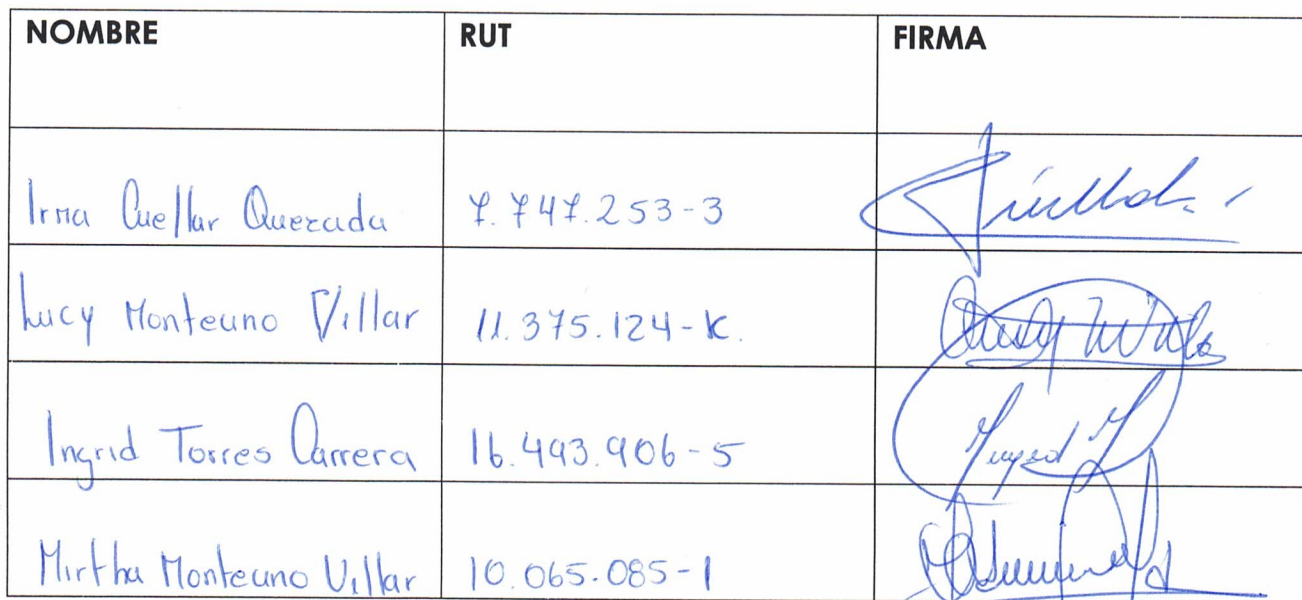 NOMBRE RUT FIRMA
Irma Cuellar Quezada 7.747.253-3
Lucy Montecino Villar 11.375.124-K.
Ingrid Torres Carrera 16.493.906-5
Mirtha Montecino Villar 10.065.085-1